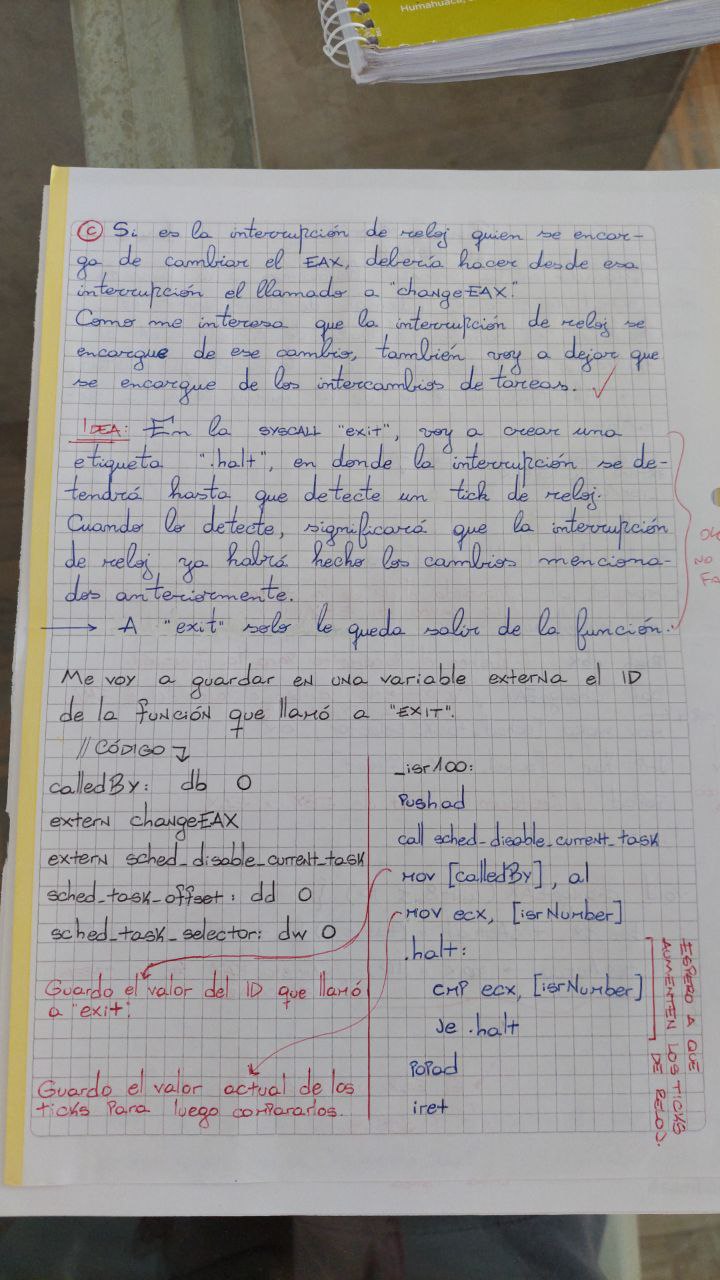 Humahuaca,
c Si es la interrupción de reloj quien se encar-
ga de cambiar el EAX, debería hacer desde esa
interrupción el llamado a "changeEAX".
Como me interesa que la interrupción de reloj se
encargue de ese cambio, también voy a dejar que
se encargue de los intercambios de tareas. ✓
IDEA: En la SYSCALL "exit", voy a crear una
etiqueta ".halt", en donde la interrupción se de-
tendrá hasta que detecte un tick de reloj.
Cuando lo detecte, significará que la interrupción
de reloj ya habrá hecho los cambios menciona-
dos anteriormente.
→ A "exit" solo le queda salir de la función.
NO
Me voy a guardar en una variable externa el ID
de la función que llamó a "EXIT".
// CÓDIGO ↓
calledBy: db 0
extern changeEAX
extern sched_disable_current_task
sched_task_offset: dd 0
sched_task_selector: dw 0
Guardo el valor del ID que llamó
a "exit".
Guardo el valor actual de los
ticks para luego compararlos.
_isr100:
pushad
call sched_disable_current_task
mov [calledBy], al
mov ecx, [isrNumber]
.halt:
cmp ecx, [isrNumber]
je .halt
popad
iret
ESPERO A QUE
AUMENTEN LOS TICKS
DE RELOJ.